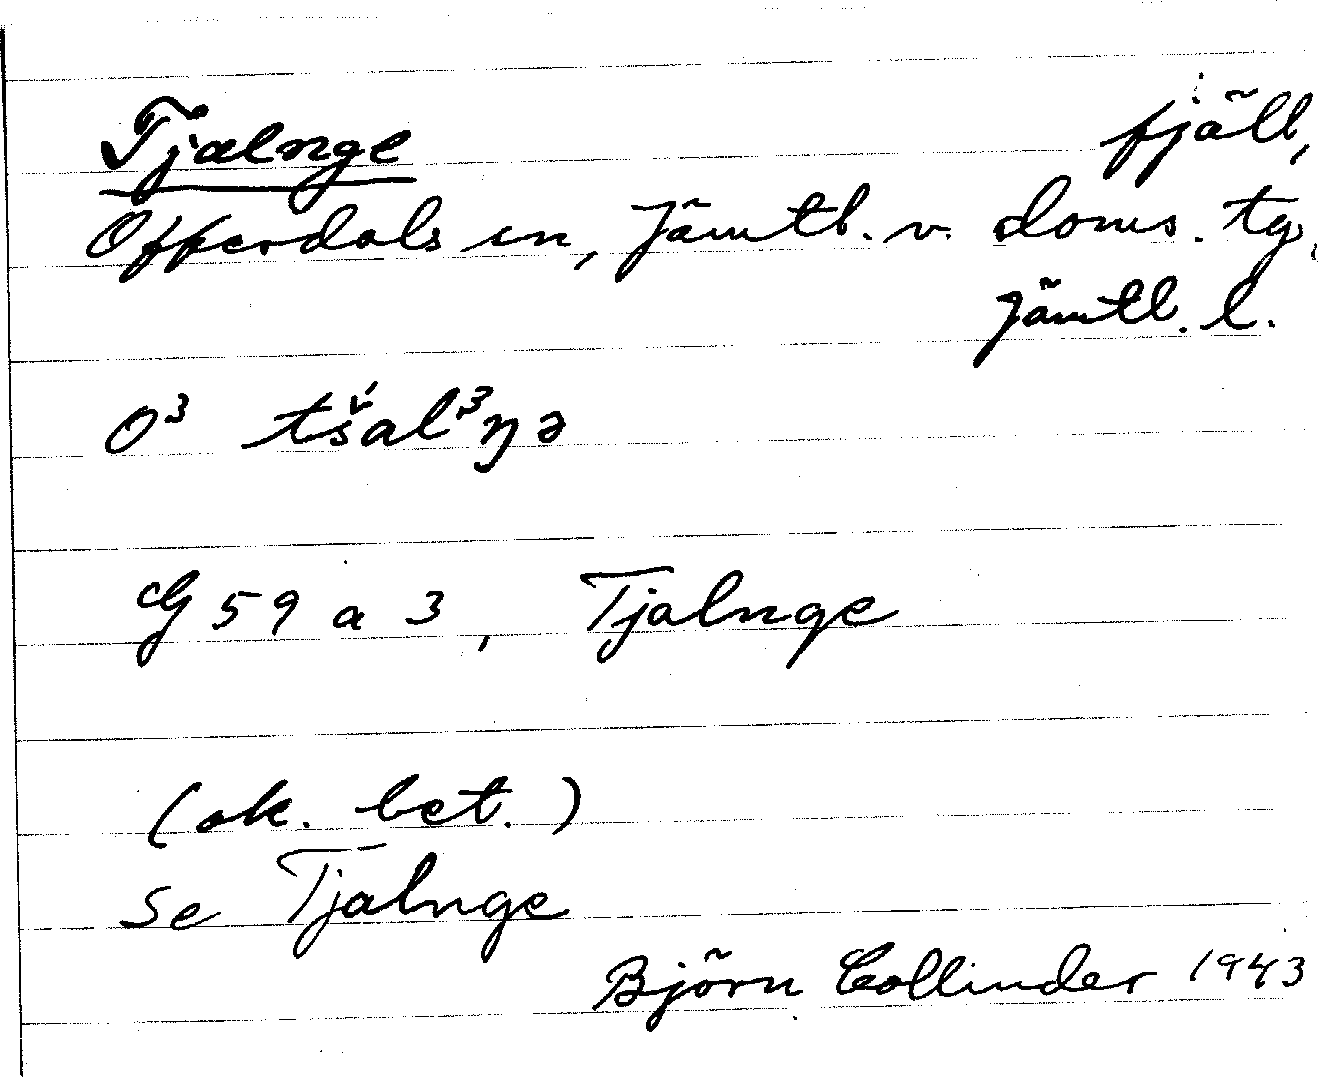 Tjalnge fjäll,
Offerdals sn, Jämtl. v. doms. tg,
Jämtl. l.
O³ tš́al³ŋə
G 59 a 3, Tjalnge
(ok. bet.)
Se Tjalnge
Björn Collinder 1943